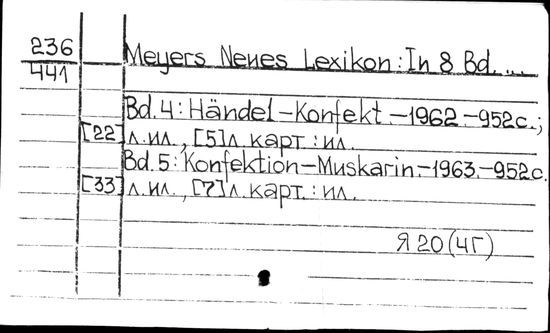 236
441
Meyers Neues Lexikon : In 8 Bd. ...
Bd. 4 : Händel – Konfekt. – 1962. – 952с. ;
[22] л. ил., [5] л. карт. : ил.
Bd. 5 : Konfektion – Muskarin. – 1963. – 952с.
[33] л. ил., [7] л. карт. : ил.
Я 20 (4Г)